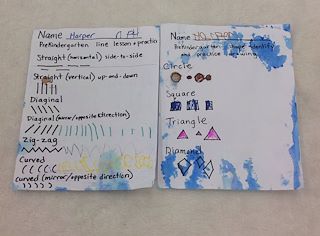 Name Harper
PreKindergarten line lesson + practice
Straight (horizontal) side-to-side
Straight (vertical) up-and-down
Diaginal
Diaginal (mirror/opposite direction)
Zig-zag
Curved
Curved (mirror/opposite direction)
Name
PreKindergarten shape identify
and practice drawing
Circle
Square
Triangle
Diamond